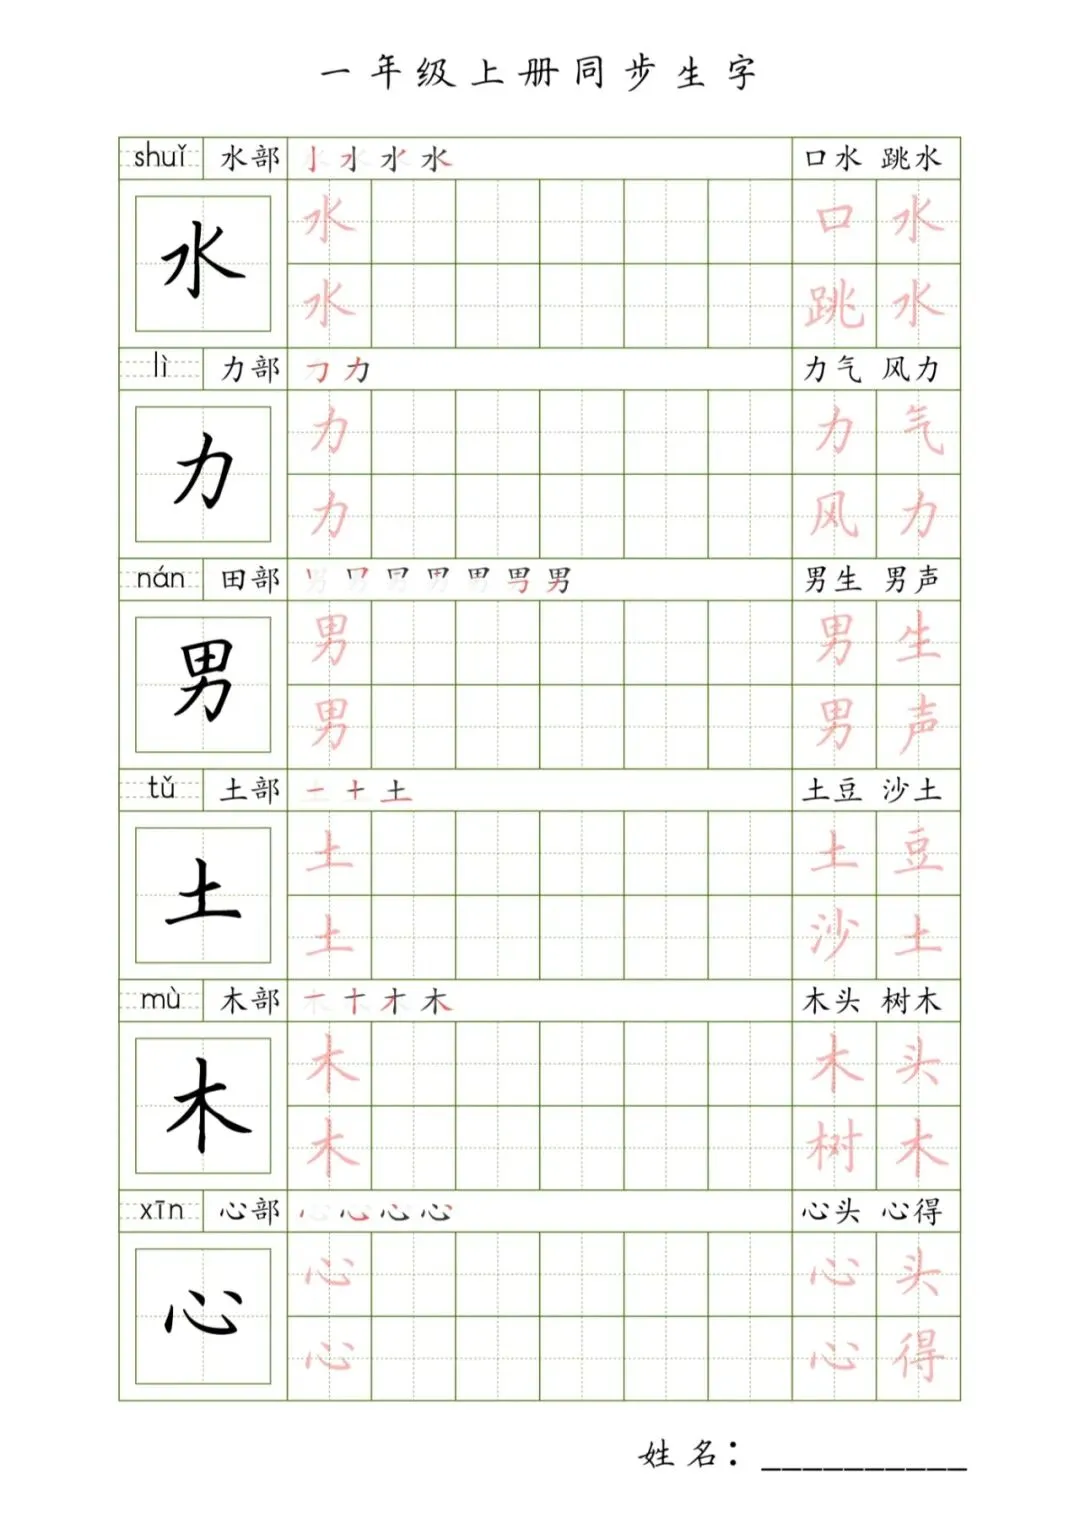 一年级上册同步生字
shuǐ 水部 水 口水 跳水
水 水 口水
水 跳水
lì 力部 力 力气 风力
力 力 力气
力 风力
nán 田部 男 男生 男声
男 男 男生
男 男声
tǔ 土部 一十土 土豆 沙土
土 土 土豆
土 沙土
mù 木部 一十才木 木头 树木
木 木 木头
木 树木
xīn 心部 心 心头 心得
心 心 心头
心 心得
姓名：__________